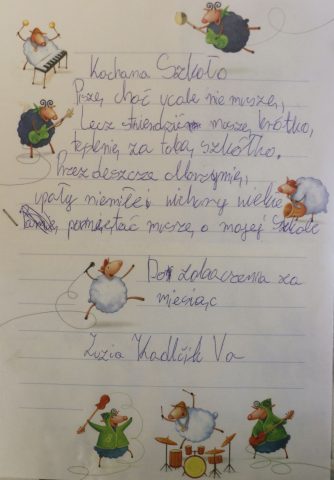 Kochana Szkoło
Piszę choć wcale nie muszę,
Lecz stwierdzić muszę krótko,
tęsknię za tobą szkółko.
Przez deszcze
upały niemiłe i wichury wielkie
pamiętać muszę o mojej szkole
Do zobaczenia za
miesiąc
Zuzia Va